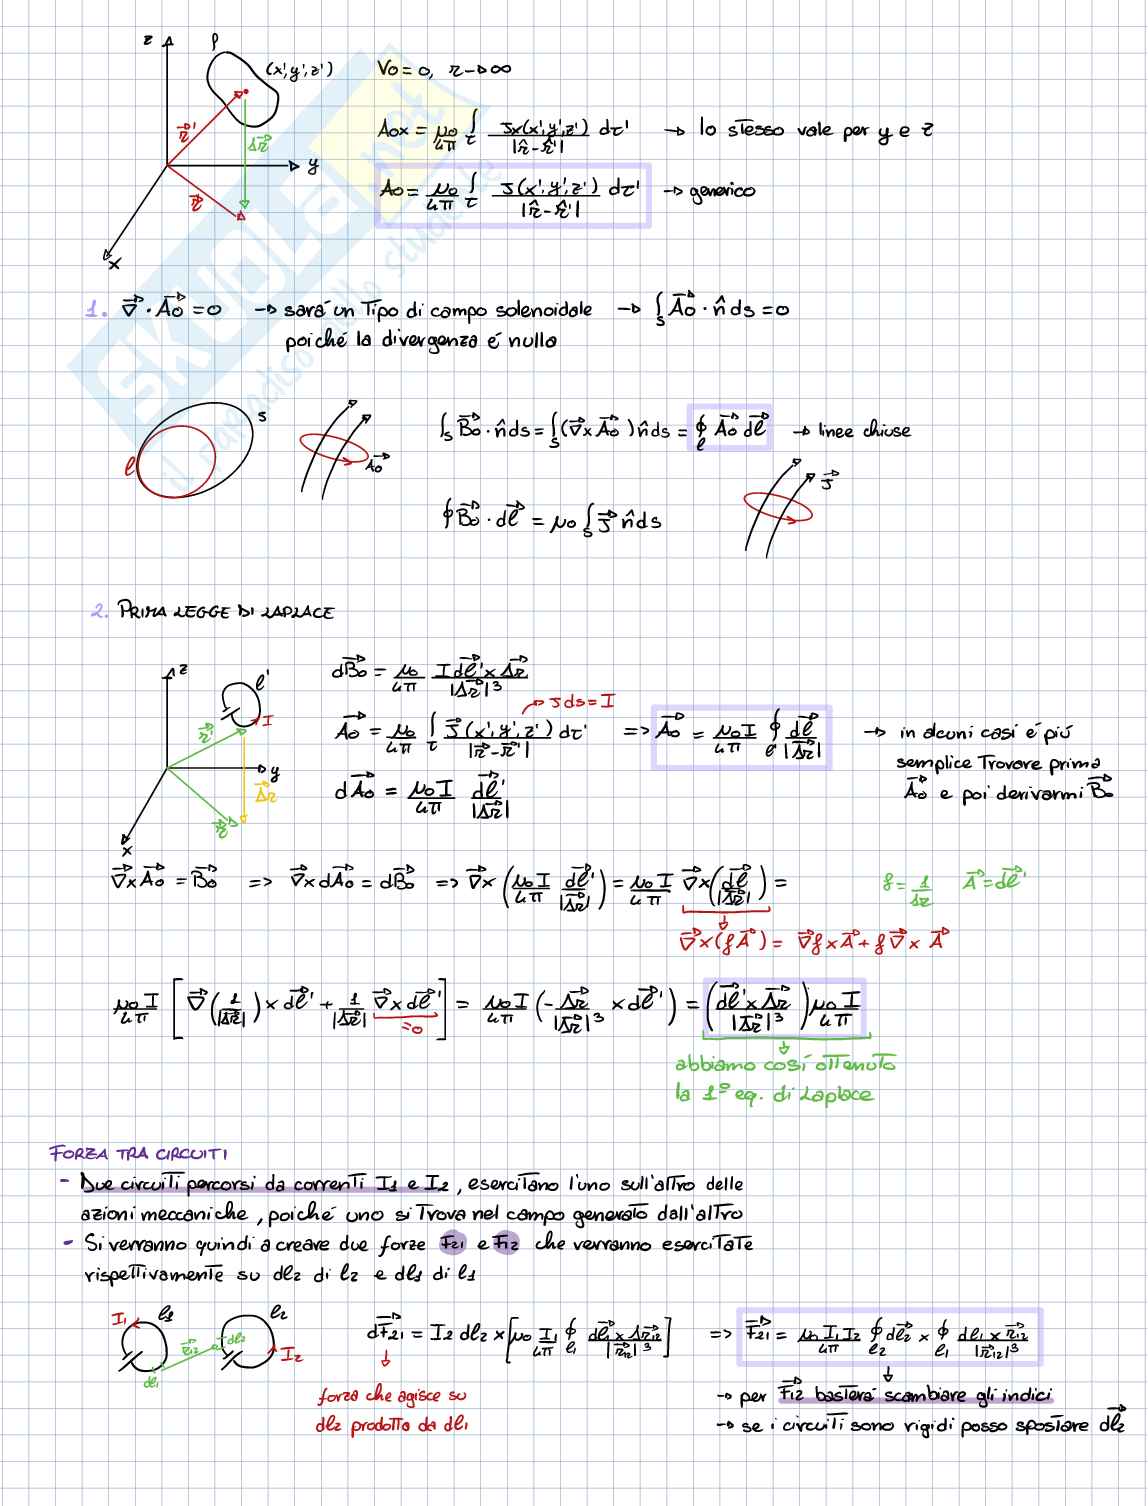 z ρ (x',y',z') V₀ = 0, r → ∞
r⃗' Δr⃗ y r⃗ x
A₀x = μ₀/4π ∫τ Jx(x',y',z')/|r̂-r̂'| dτ' → lo stesso vale per y e z
A₀ = μ₀/4π ∫τ J(x',y',z')/|r̂-r̂'| dτ' → generico
1. ∇⃗ · A⃗₀ = 0 → sará un tipo di campo solenoidale → ∫s A⃗₀ · n̂ ds = 0
poiché la divergenza é nulla
l s A⃗₀ ∫s B⃗₀ · n̂ ds = ∫s (∇⃗ x A⃗₀) n̂ ds = ∮l A⃗₀ dl⃗ → linee chiuse
J⃗
∮ B⃗₀ · dl⃗ = μ₀ ∫s J⃗ n̂ ds
2. PRIMA LEGGE DI LAPLACE
z l' I r⃗' y Δr⃗ r⃗ x
dB⃗₀ = μ₀/4π I dl⃗' x Δr⃗/|Δr⃗|³
→ J ds = I
A⃗₀ = μ₀/4π ∫τ J⃗(x',y',z')/|r⃗-r⃗'| dτ' => A⃗₀ = μ₀I/4π ∮l' dl⃗/|Δr⃗| → in alcuni casi é piú
semplice trovare prima
dA⃗₀ = μ₀I/4π dl⃗'/|Δr⃗|
A⃗₀ e poi derivarmi B⃗₀
∇⃗ x A⃗₀ = B⃗₀ => ∇⃗ x dA⃗₀ = dB⃗₀ => ∇⃗ x (μ₀I/4π dl⃗'/|Δr⃗|) = μ₀I/4π ∇⃗ x (dl⃗/|Δr⃗|) = f = 1/Δr A⃗ = dl⃗'
∇⃗ x (f A⃗) = ∇⃗f x A⃗ + f ∇⃗ x A⃗
μ₀I/4π [∇⃗(1/|Δr⃗|) x dl⃗' + 1/|Δr⃗| ∇⃗ x dl⃗'] = μ₀I/4π (-Δr⃗/|Δr⃗|³ x dl⃗') = (dl⃗' x Δr⃗/|Δr⃗|³) μ₀I/4π
=0
abbiamo cosí ottenuto
la 1° eq. di Laplace
FORZA TRA CIRCUITI
- Due circuiti percorsi da correnti I₁ e I₂, esercitano l'uno sull'altro delle
azioni meccaniche, poiché uno si trova nel campo generato dall'altro
- Si verranno quindi a creare due forze F₂₁ e F₁₂ che verranno esercitate
rispettivamente su dl₂ di l₂ e dl₁ di l₁
I₁ l₁ l₂ r⃗₁₂ dl₂ I₂ dl₁
dF⃗₂₁ = I₂ dl₂ x [μ₀ I₁/4π ∮l₁ dl⃗₁ x Δr⃗₁₂/|r⃗₁₂|³] => F⃗₂₁ = μ₀ I₁ I₂/4π ∮l₂ dl⃗₂ x ∮l₁ dl₁ x r⃗₁₂/|r⃗₁₂|³
forza che agisce su
dl₂ prodotta da dl₁
→ per F⃗₁₂ basterá scambiare gli indici
→ se i circuiti sono rigidi posso spostare dl⃗₂
SKUOLA.net
il paradiso dello studente